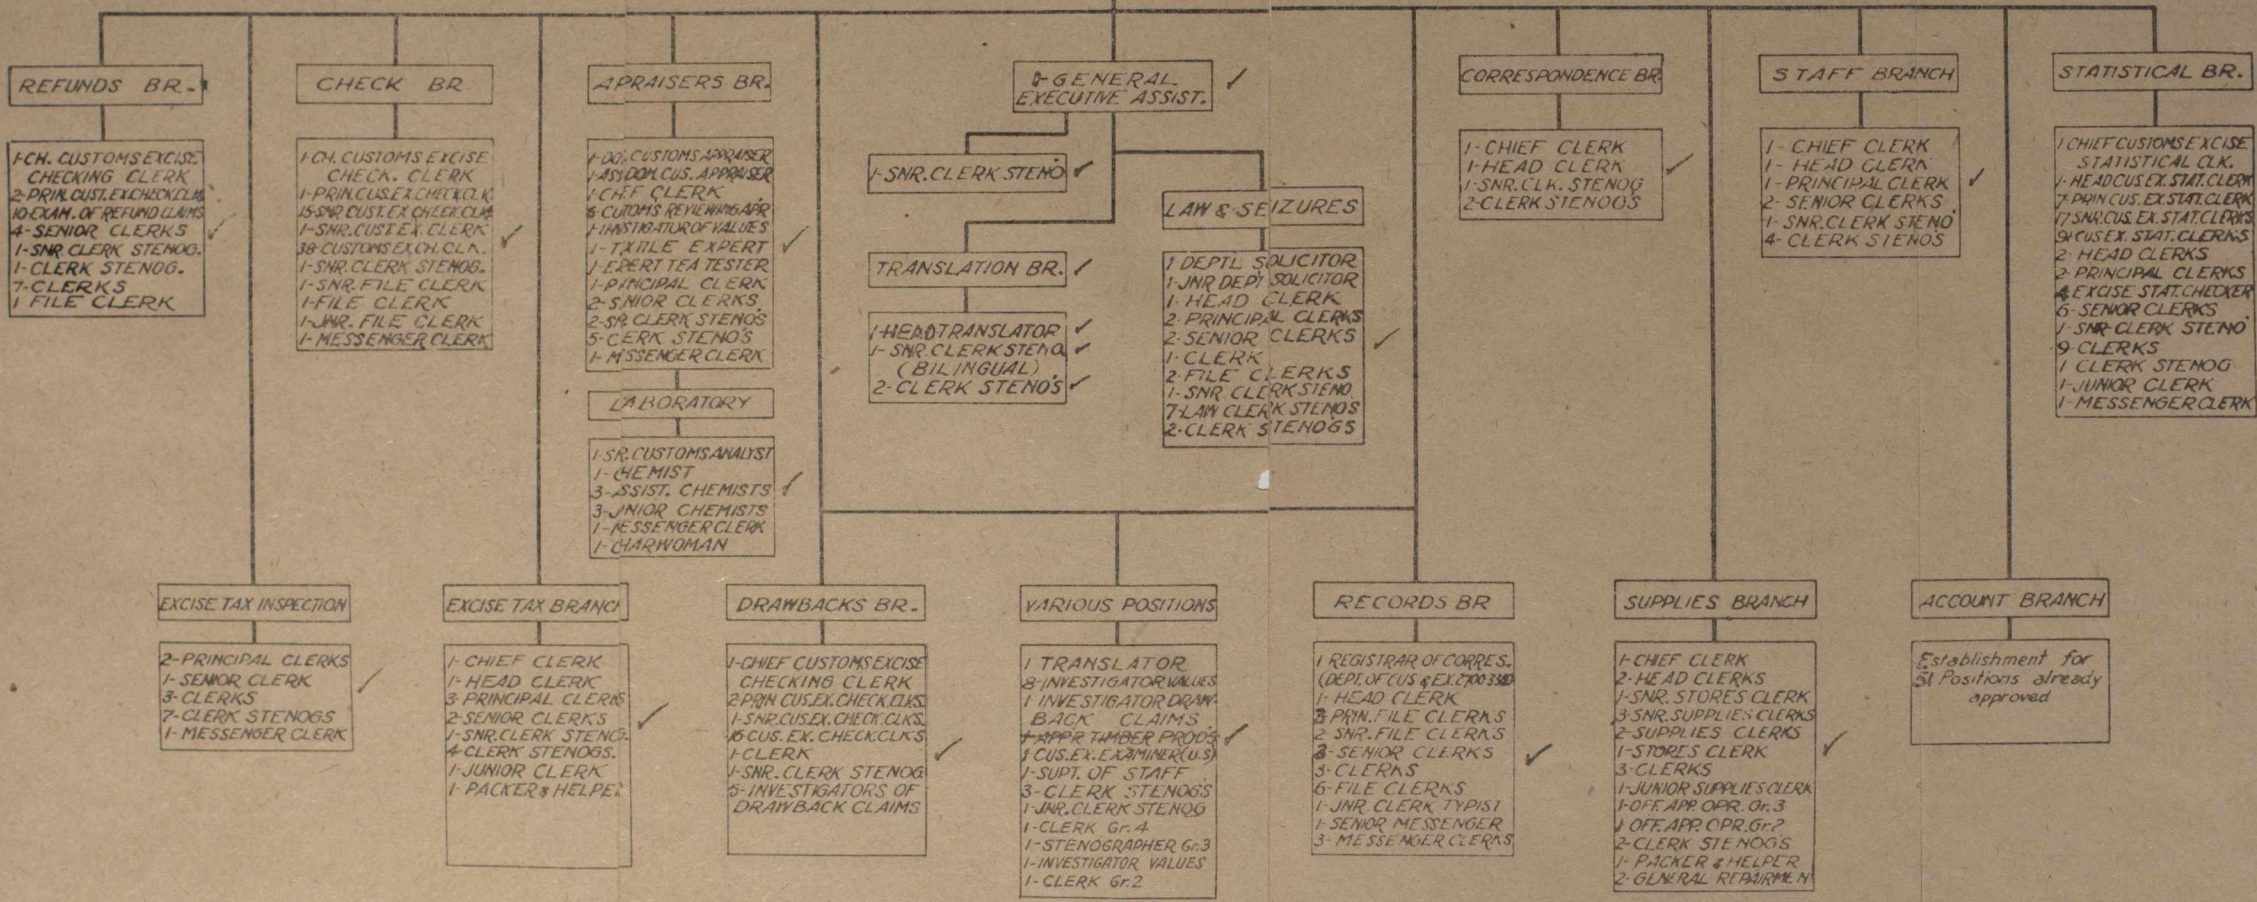 REFUNDS BR.
1-CH. CUSTOMS EXCISE
CHECKING CLERK
2-PRIN. CUST. EX. CHECK CLKS
10-EXAM. OF REFUND CLAIMS
4-SENIOR CLERKS
1-SNR. CLERK STENOG.
1-CLERK STENOG.
7-CLERKS
1 FILE CLERK
CHECK BR
1-CH. CUSTOMS EXCISE
CHECK. CLERK
1-PRIN. CUS. EX CHECK CLK
15-SNR. CUST. EX CHECK CLKS
1-SNR. CUST. EX. CLERK
38-CUSTOMS EX CH. CLK.
1-SNR. CLERK STENOG.
1-SNR. FILE CLERK
1-FILE CLERK
1-JNR. FILE CLERK
1-MESSENGER CLERK
APRAISERS BR.
1-DO. CUSTOMS APPRAISER
1-ASS DOM. CUS. APPRAISER
1-CHEF CLERK
6-CUTOMS REVIEWING APR
1-INVSTIGATOR OF VALUES
1-TXTILE EXPERT
1-EPERT TEA TESTER
1-PINCIPAL CLERK
2-SNIOR CLERKS
2-SR. CLERK STENO'S
5-CERK STENO'S
1-MSSENGER CLERK
LABORATORY
1-SR. CUSTOMS ANALYST
1-CHEMIST
3-ASSIST. CHEMISTS
3-JNIOR CHEMISTS
1-MESSENGER CLERK
1-CHARWOMAN
GENERAL
EXECUTIVE ASSIST.
1-SNR. CLERK STENO
TRANSLATION BR.
1-HEAD TRANSLATOR
1-SNR. CLERK STENO.
(BILINGUAL)
2-CLERK STENO'S
LAW & SEIZURES
1 DEPTL SOLICITOR
1-JNR DEPT SOLICITOR
1-HEAD CLERK
2-PRINCIPAL CLERKS
2-SENIOR CLERKS
1-CLERK
2-FILE CLERKS
1-SNR. CLERK STENO.
7-LAW CLERK STENOS
2-CLERK STENOGS
CORRESPONDENCE BR.
1-CHIEF CLERK
1-HEAD CLERK
1-SNR. CLK. STENOG
2-CLERK STENOGS
STAFF BRANCH
1-CHIEF CLERK
1-HEAD CLERK
1-PRINCIPAL CLERK
2-SENIOR CLERKS
1-SNR. CLERK STENO
4-CLERK STENOS
STATISTICAL BR.
1 CHIEF CUSTOMS EXCISE
STATISTICAL CLK.
1-HEAD CUS. EX. STAT. CLERK
7-PRIN CUS. EX. STAT. CLERK
17 SNR. CUS. EX. STAT. CLERKS
91 CUS EX. STAT. CLERKS
2-HEAD CLERKS
2-PRINCIPAL CLERKS
4 EXCISE STAT. CHECKER
6-SENIOR CLERKS
1-SNR-CLERK STENO
9-CLERKS
1 CLERK STENOG
1-JUNIOR CLERK
1-MESSENGER CLERK
EXCISE TAX INSPECTION
2-PRINCIPAL CLERKS
1-SENIOR CLERK
3-CLERKS
7-CLERK STENOGS
1-MESSENGER CLERK
EXCISE TAX BRANCH
1-CHIEF CLERK
1-HEAD CLERK
3-PRINCIPAL CLERKS
2-SENIOR CLERKS
1-SNR. CLERK STENOG.
4 CLERK STENOGS.
1-JUNIOR CLERK
1-PACKER & HELPER
DRAWBACKS BR.
1-CHIEF CUSTOMS EXCISE
CHECKING CLERK
2-PRIN CUS. EX. CHECK. CLKS.
1-SNR. CUS. EX. CHECK. CLKS.
16-CUS. EX. CHECK. CLKS
1-CLERK
1-SNR. CLERK STENOG
5-INVESTIGATORS OF
DRAWBACK CLAIMS
VARIOUS POSITIONS
1 TRANSLATOR
8-INVESTIGATOR VALUES
1-INVESTIGATOR DRAW-
BACK CLAIMS
1-APPR TIMBER PROD'S
1 CUS. EX. EXAMINER (U.S)
1-SUPT. OF STAFF
3-CLERK STENOGS
1-JNR. CLERK STENOG
1-CLERK Gr. 4
1-STENOGRAPHER Gr. 3
1-INVESTIGATOR VALUES
1-CLERK Gr. 2
RECORDS BR
1 REGISTRAR OF CORRES.
(DEPT. OF CUS & EX. 2700 3300
1-HEAD CLERK
3 PRIN. FILE CLERKS
2 SNR. FILE CLERKS
3-SENIOR CLERKS
3-CLERKS
6-FILE CLERKS
1-JNR. CLERK TYPIST
1-SENIOR MESSENGER
3-MESSENGER CLERKS
SUPPLIES BRANCH
1-CHIEF CLERK
2-HEAD CLERKS
1-SNR. STORES CLERK
3-SNR. SUPPLIES CLERKS
2-SUPPLIES CLERKS
1-STORES CLERK
3-CLERKS
1-JUNIOR SUPPLIES CLERK
1-OFF. APP. OPR. Gr. 3
1 OFF. APP. OPR. Gr. 2
2-CLERK STENOGS
1-PACKER & HELPER
2-GENERAL REPAIRMEN
ACCOUNT BRANCH
Establishment for
51 Positions already
approved